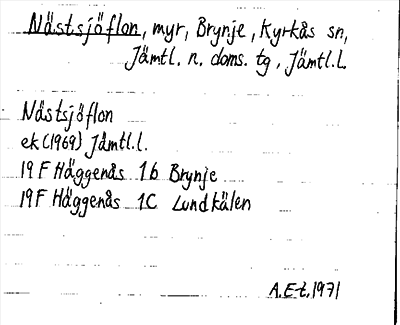 Nästsjöflon, myr, Brynje, Kyrkås sn,
Jämtl. n. doms. tg, Jämtl.L.
Nästsjöflon
ek (1969) Jämtl.l.
19 F Häggenås 1b Brynje
19F Häggenås 1C Lundkälen
A.E-t.1971